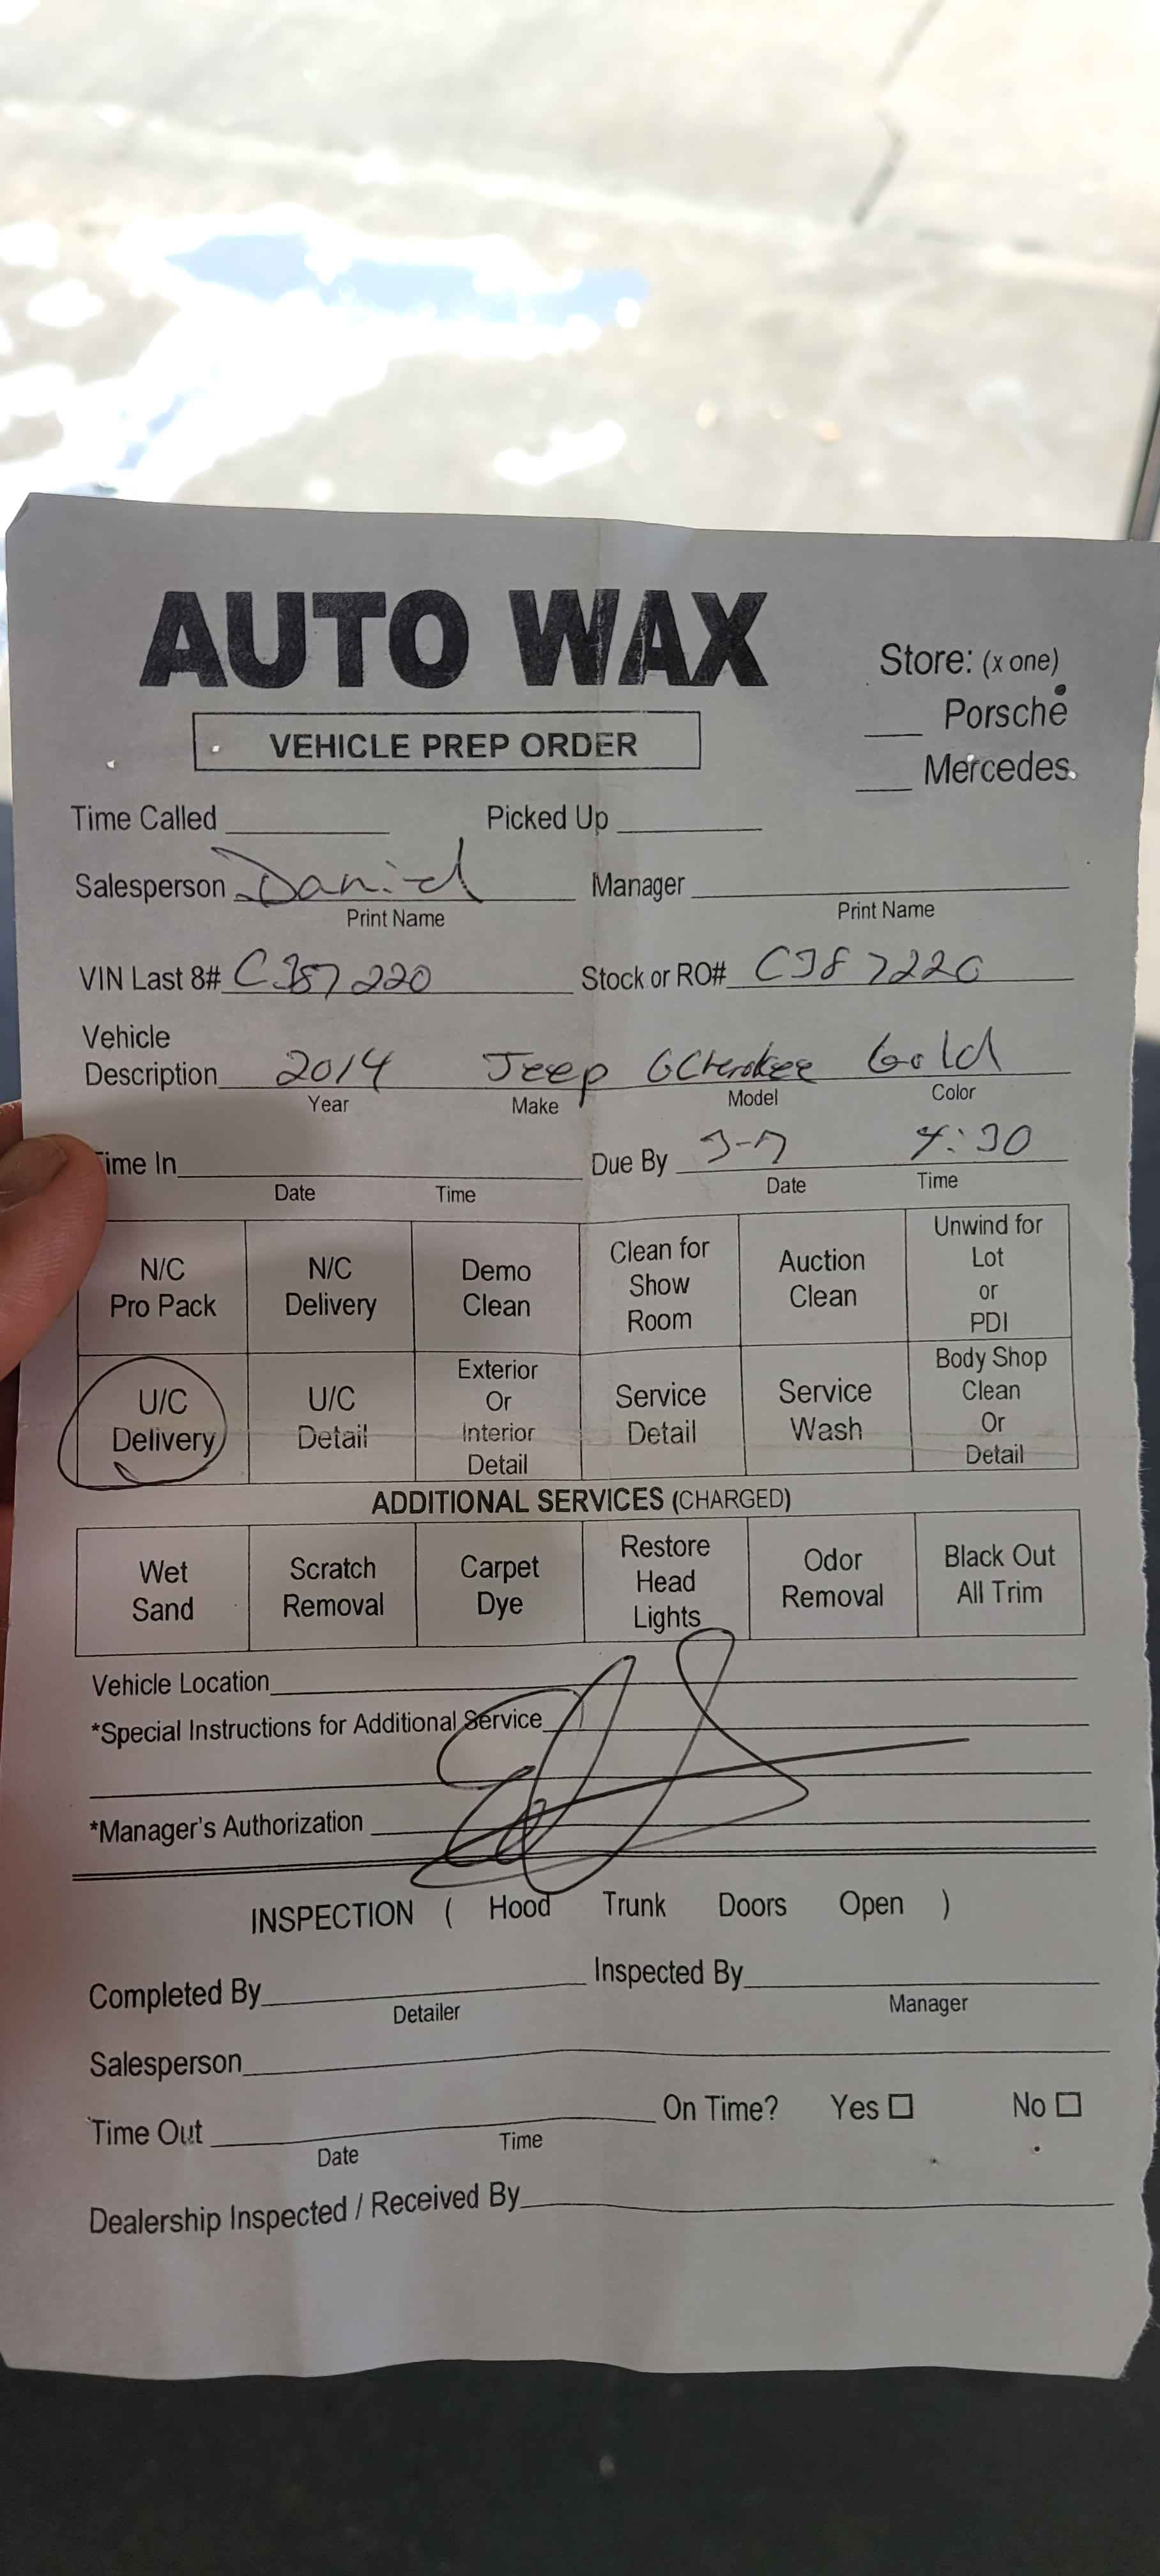 AUTO WAX
Store: (x one)
___ Porsche
VEHICLE PREP ORDER
___ Mercedes
Time Called ______ Picked Up ______
Salesperson Daniel Manager ______
Print Name Print Name
VIN Last 8# CJ87220 Stock or RO# CJ87220
Vehicle
Description 2014 Jeep GCherokee Gold
Year Make Model Color
Time In ______ Due By 3-7 4:30
Date Time Date Time
N/C Pro Pack N/C Delivery Demo Clean Clean for Show Room Auction Clean Unwind for Lot or PDI
U/C Delivery U/C Detail Exterior Or Interior Detail Service Detail Service Wash Body Shop Clean Or Detail
ADDITIONAL SERVICES (CHARGED)
Wet Sand Scratch Removal Carpet Dye Restore Head Lights Odor Removal Black Out All Trim
Vehicle Location
*Special Instructions for Additional Service
*Manager's Authorization
INSPECTION ( Hood Trunk Doors Open )
Completed By ______ Inspected By ______
Detailer Manager
Salesperson
Time Out ______ On Time? Yes ☐ No ☐
Date Time
Dealership Inspected / Received By